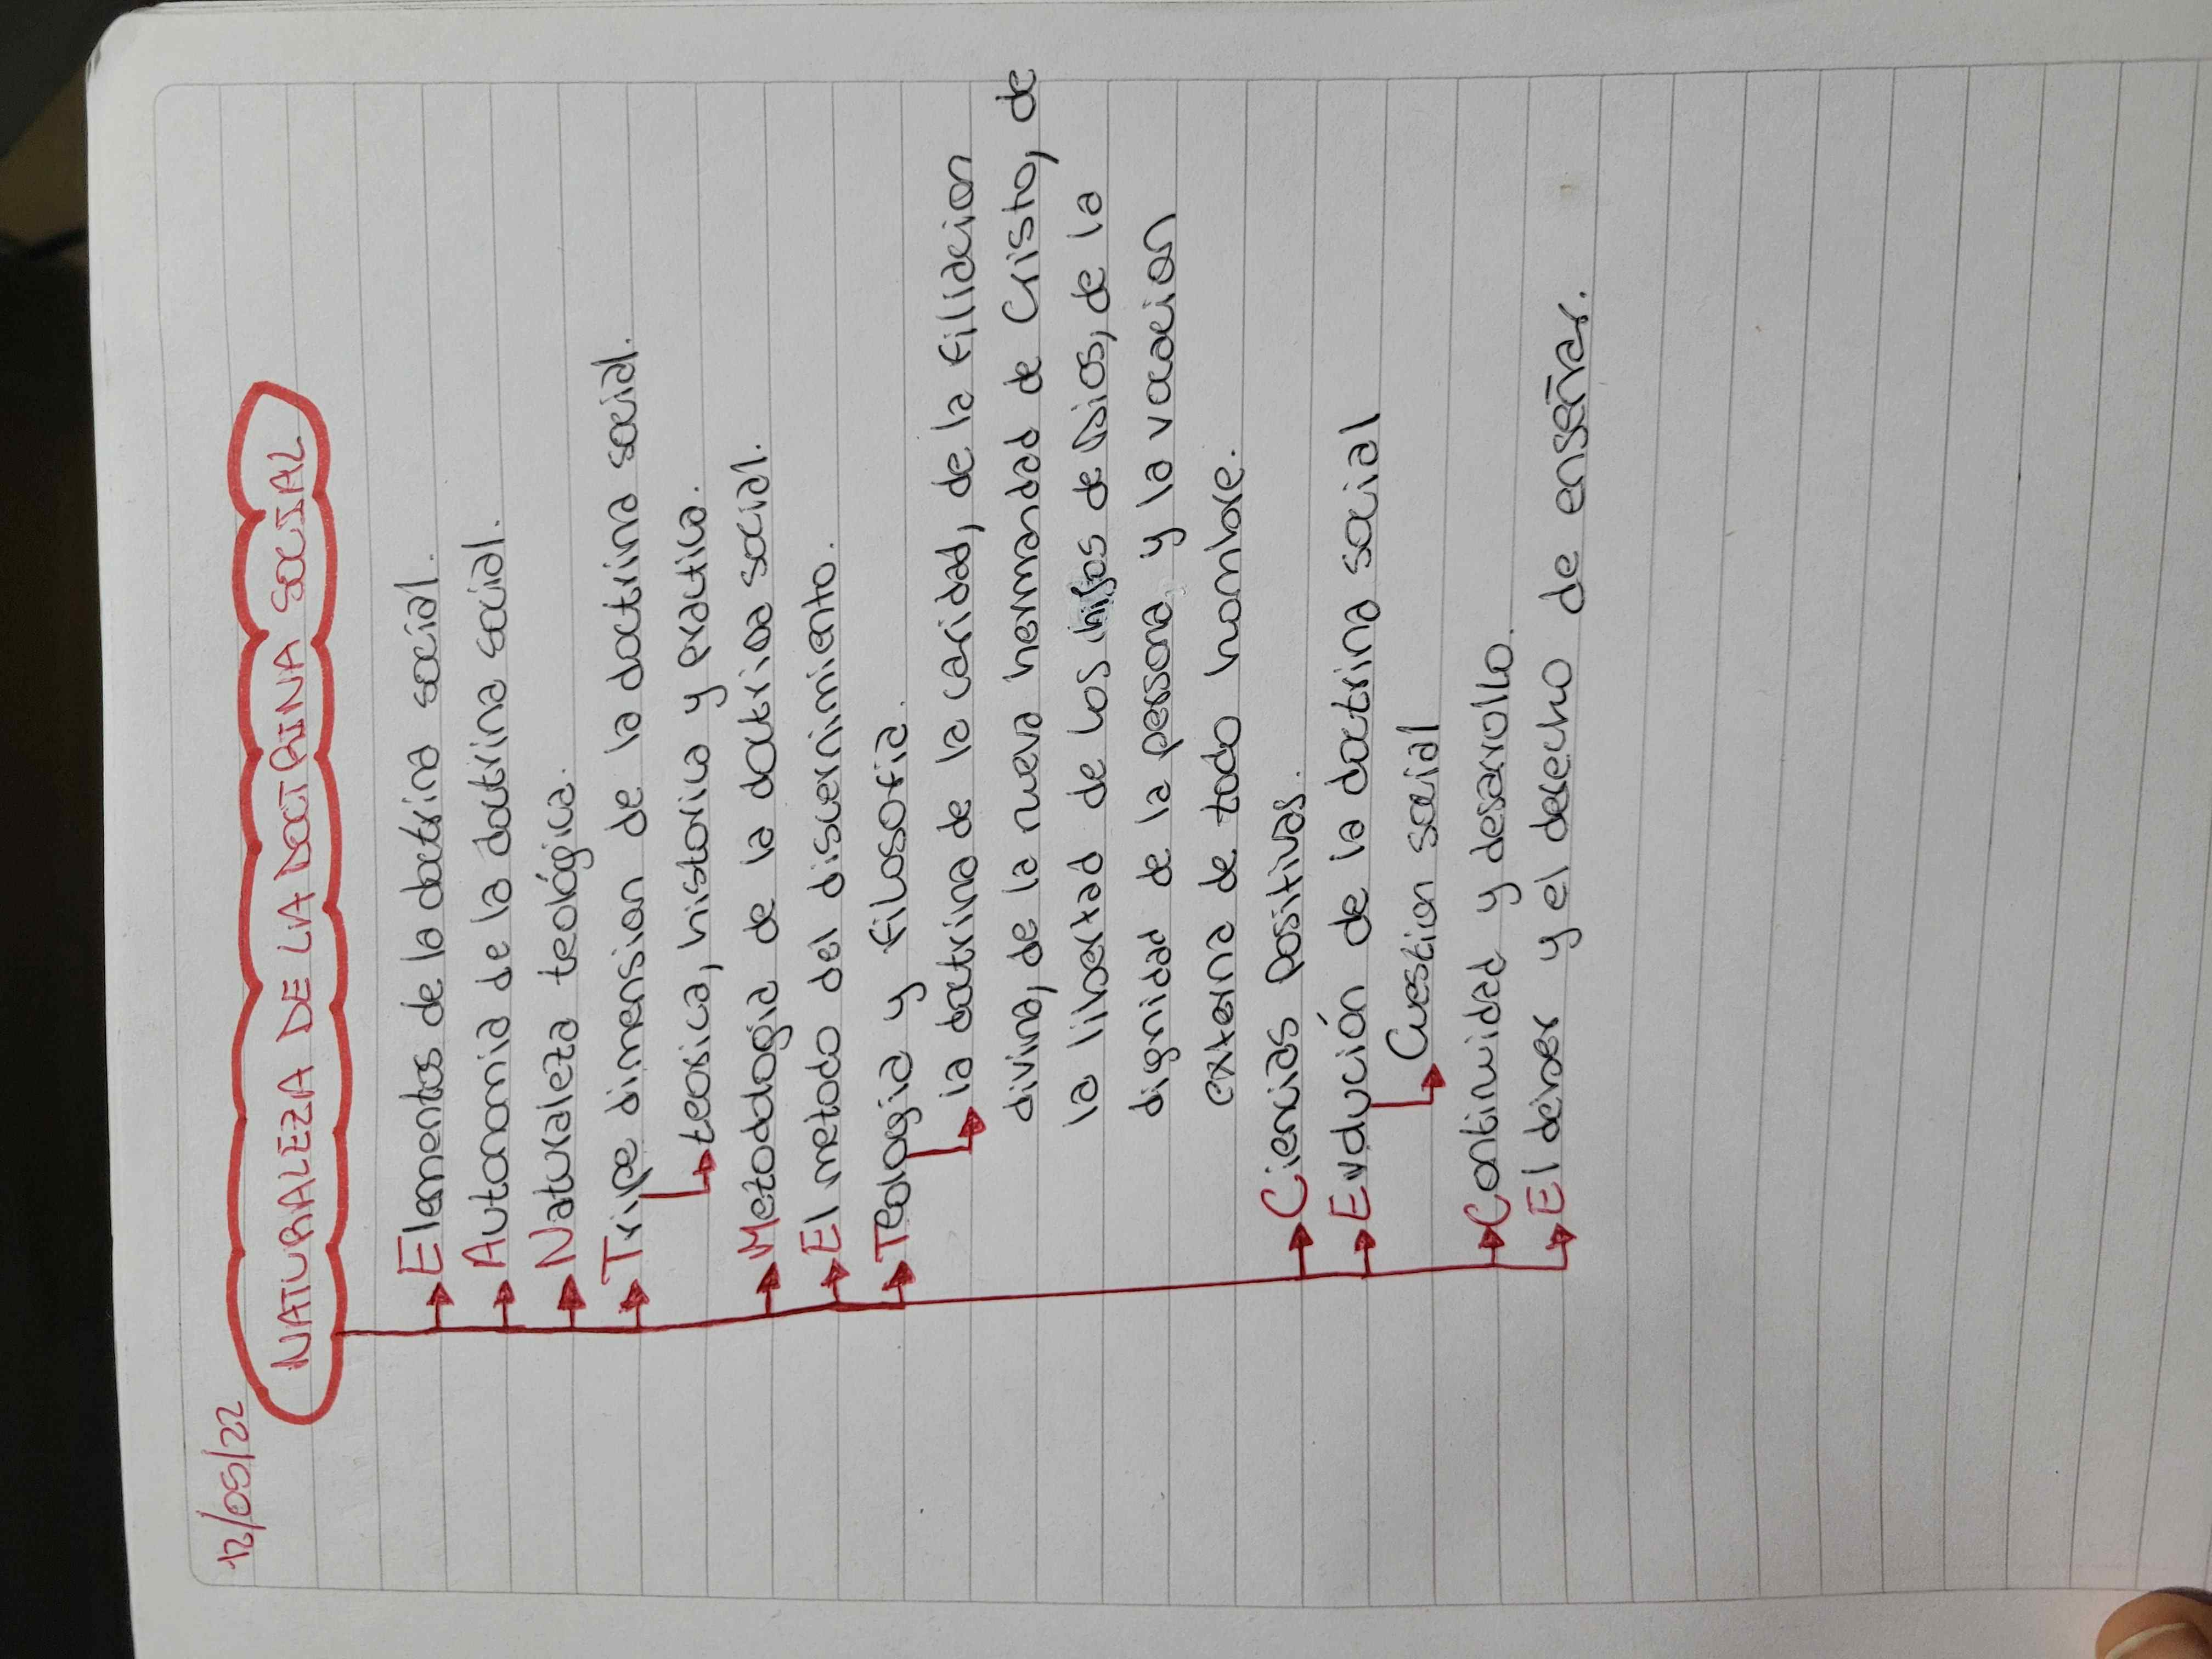 12/05/22
NATURALEZA DE LA DOCTRINA SOCIAL
Elementos de la doctrina social.
Autonomia de la doctrina social.
Naturaleza teológica.
Tripe dimension de la doctrina social.
teorica, historica y practica.
Metodologia de la doctrina social.
El metodo del discernimiento.
Teologia y filosofia.
la doctrina de la caridad, de la filiacion
divina, de la nueva hermandad de Cristo, de
la libertad de los hijos de Dios, de la
dignidad de la persona y la vocacion
externa de todo hombre.
Ciencias positivas.
Evolución de la doctrina social
Cuestion social
Continuidad y desarrollo.
El deber y el derecho de enseñar.